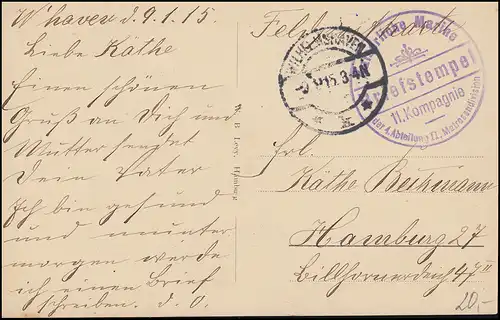 W'haven d. 9.1.15.
Liebe Käthe
Einen schönen
Gruß an Dich und
Mutter sendet
Dein Vater
Ich bin gesund
und munter
morgen werde
ich einen Brief
schreiben. d. O.
Levy, Hamburg
WILHELMSHAVEN
15.3-4N
Marine
Briefstempel
11. Kompagnie
der 4. Abteilung II. Matrosendivision
Frl.
Käthe Beihmann
Hamburg 27
Billhornerdeich 47 III
20,-